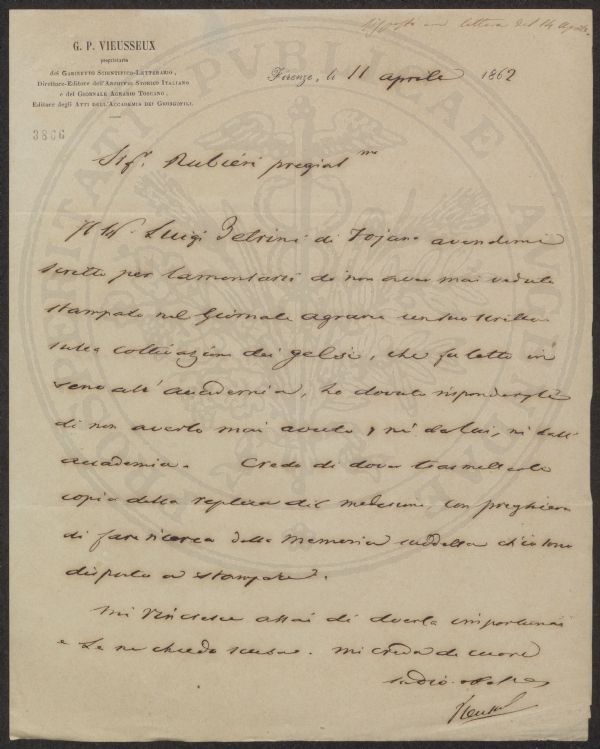 Risposto con lettera del 14 Aprile.
G. P. VIEUSSEUX
proprietario
del GABINETTO SCIENTIFICO-LETTERARIO,
Direttore-Editore dell'ARCHIVIO STORICO ITALIANO
e del GIORNALE AGRARIO TOSCANO,
Editore degli ATTI DELL'ACCADEMIA DEI GEORGOFILI.
3866
Firenze, le 11 aprile 1862
Sig.r Rubieri pregiat.mo
Il Sr. Luigi Petrini di Fojano avendomi
scritto per lamentarsi di non aver mai veduto
stampato nel Giornale agrario un suo scritto
sulla coltivazione dei gelsi, che fu letto in
seno all' accademia, ho dovuto rispondergli
di non averlo mai avuto, nè da lui, nè dall'
accademia. Credo di dover trasmetterle
copia della replica del medesimo, con preghiera
di fare ricerca della Memoria suddetta ch'io sono
disposto a stampare.
Mi rincresce assai di doverla importunare
e Le ne chiedo scusa. Mi creda di cuore
Vieusseux
PROSPERITATI PUBLICAE AUGENDAE